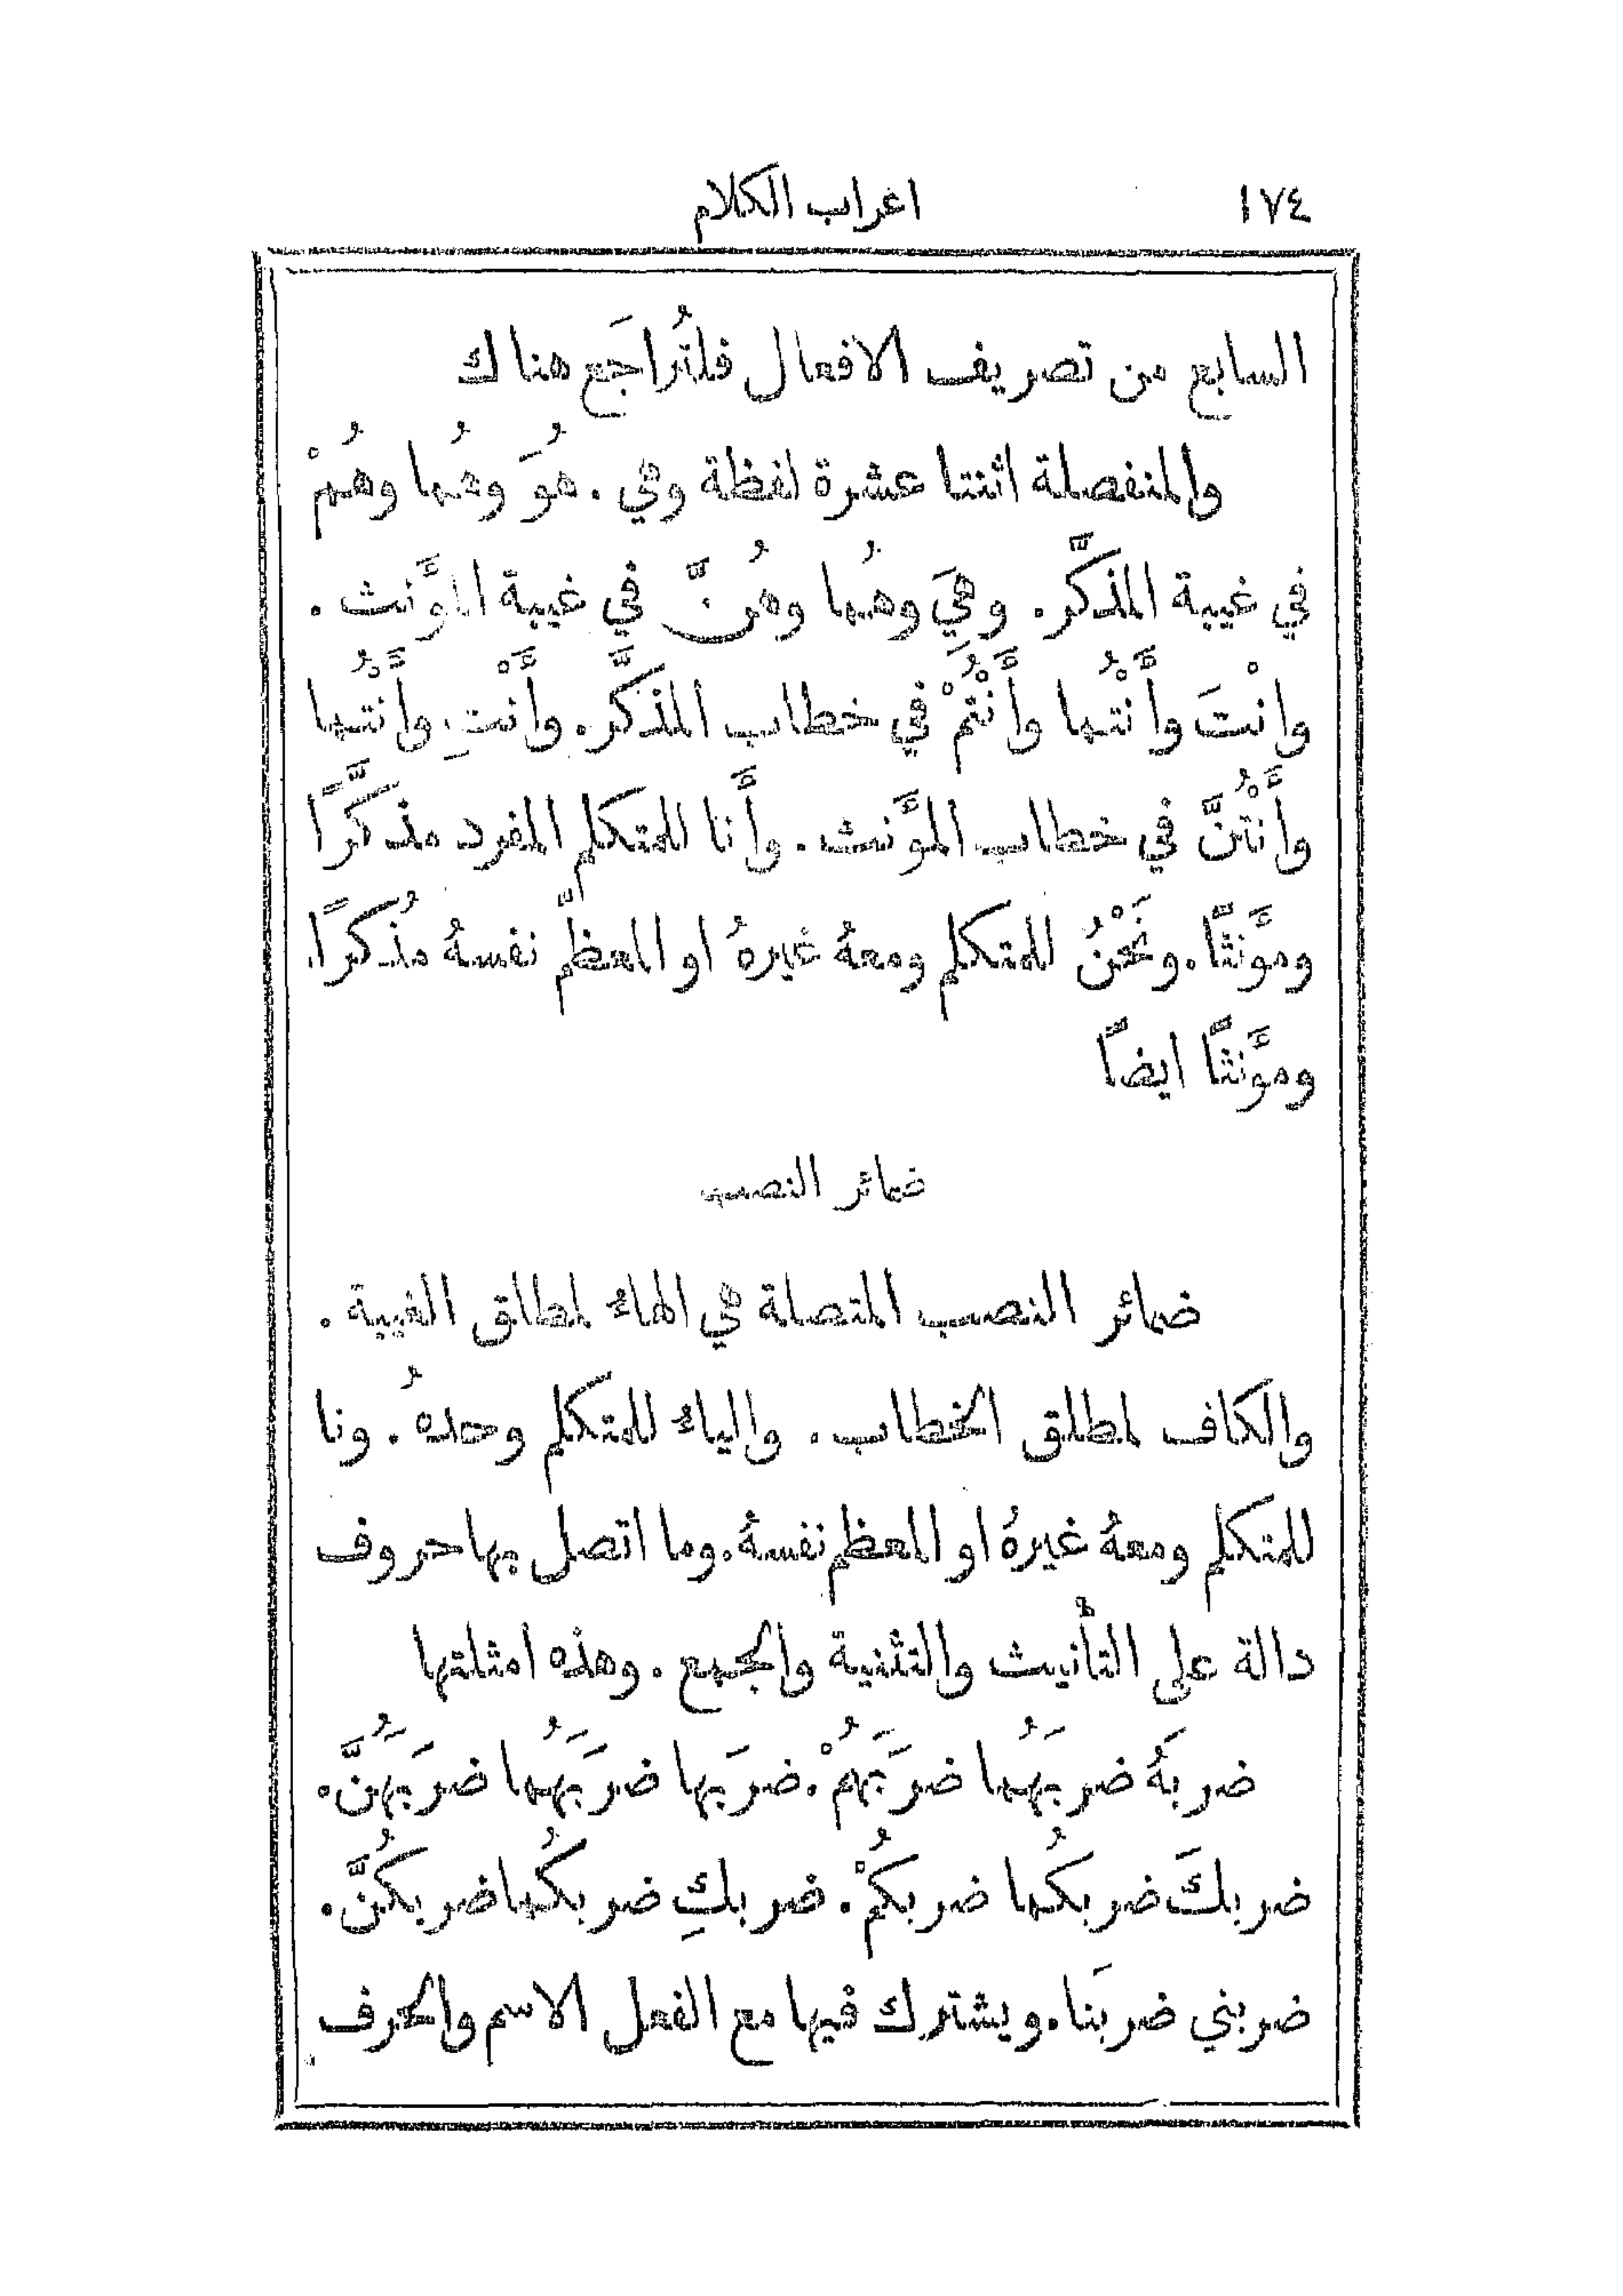 ١٧٤ اعراب الكلام
السابع من تصريف الافعال فلتُراجَع هناك
والمنفصلة اثنتا عشرة لفظة وهي . هُوَ وهُما وهُمْ
في غيبة المذكَّر. وهيَ وهُما وهُنَّ في غيبة المؤَنث .
وانْتَ وأَنْتُما وأَنْتُمْ في خطاب المذكَّر. وأَنْتِ وأَنْتُما
وأَنْتُنَّ في خطاب المؤَنث . وأَنا للمتكلم المفرد مذكَّرًا
ومؤَنثًا. ونَحْنُ للمتكلم ومعهُ غيرهُ او المعظّم نفسهُ مُذكرًا
ومؤَنثًا ايضاً
ضمائر النصب
ضمائر النصب المتصلة هي الهاء لمطلق الغيبة .
والكاف لمطلق الخطاب . والياء للمتكلم وحدهُ . ونا
للمتكلم ومعهُ غيرهُ او المعظم نفسهُ. وما اتصل بها حروف
دالة على التأنيث والتثنية والجمع . وهذه امثلتها
ضربَهُ ضربَهُما ضرَبَهُمْ . ضرَبها ضرَبَهُما ضرَبَهُنَّ .
ضربكَ ضربكُما ضربكُمْ . ضربكِ ضربكُما ضربكُنَّ .
ضربني ضربَنا. ويشترك فيها مع الفعل الاسم والحرف